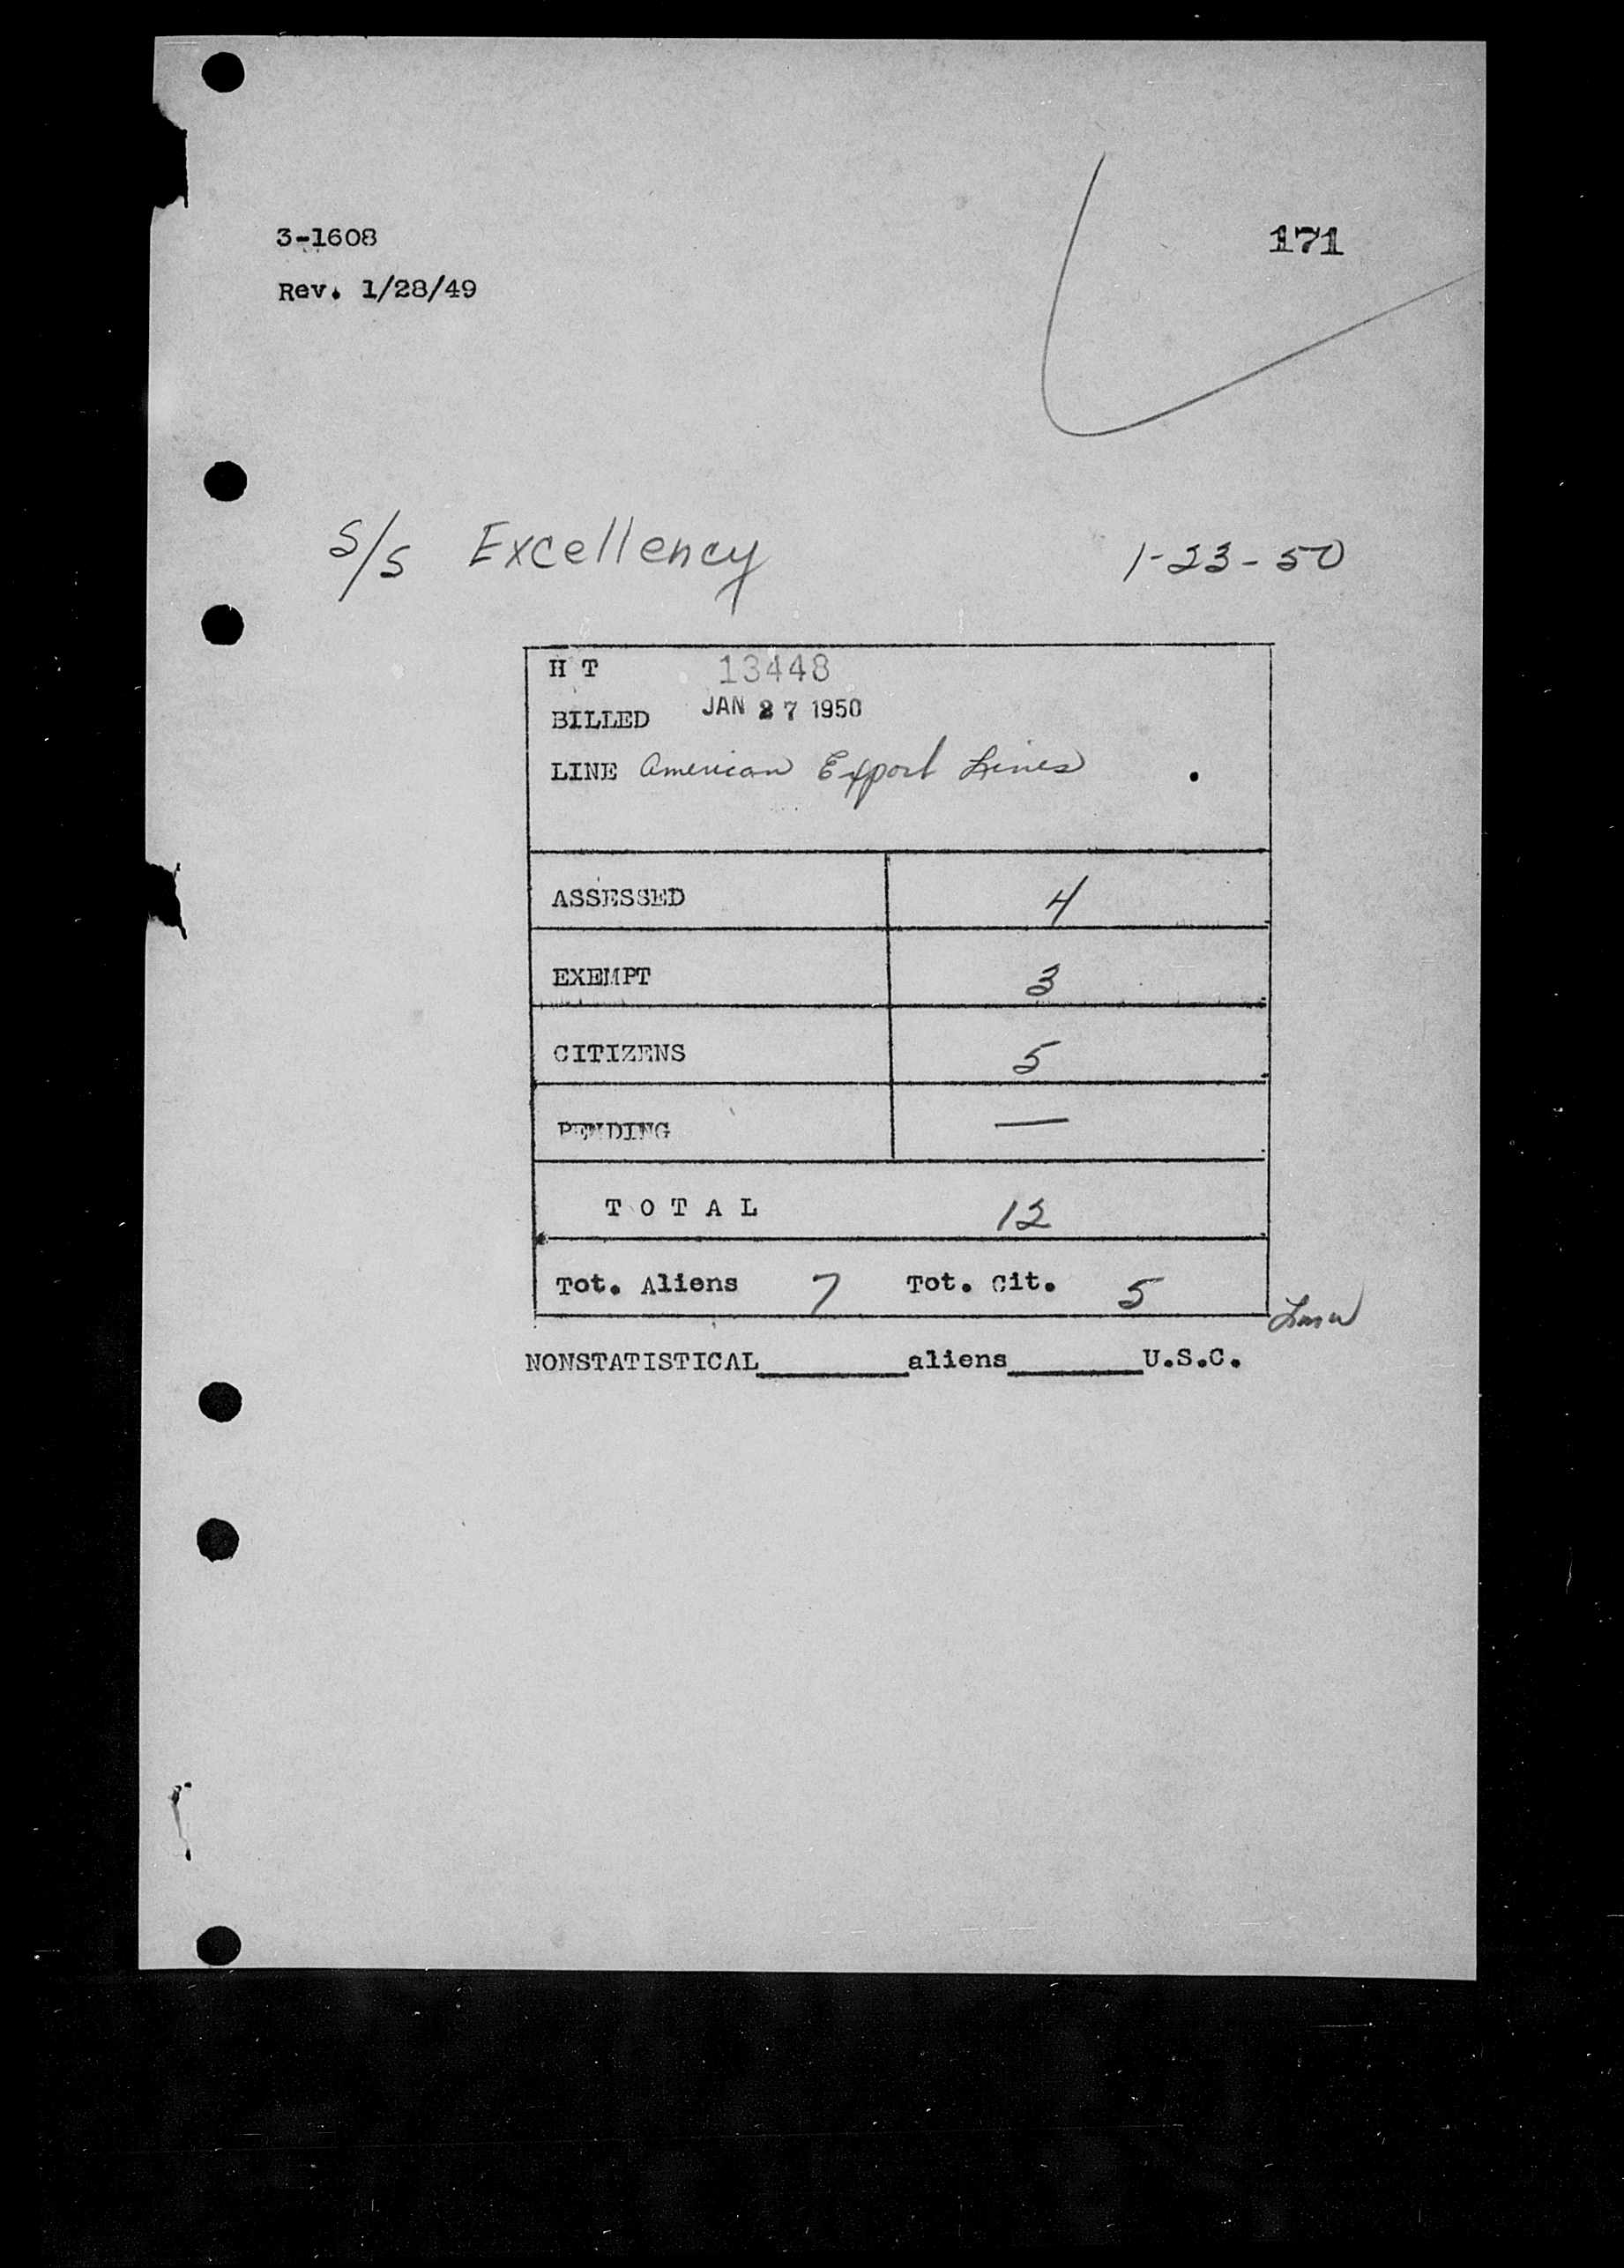 3-1608
171
Rev. 1/28/49
S/S Excellency 1-23-50
H T 13448
BILLED JAN 27 1950
LINE American Export Lines .
ASSESSED 4
EXEMPT 3
CITIZENS 5
PENDING —
T O T A L 12
Tot. Aliens 7 Tot. Cit. 5
NONSTATISTICAL________aliens________U.S.C.